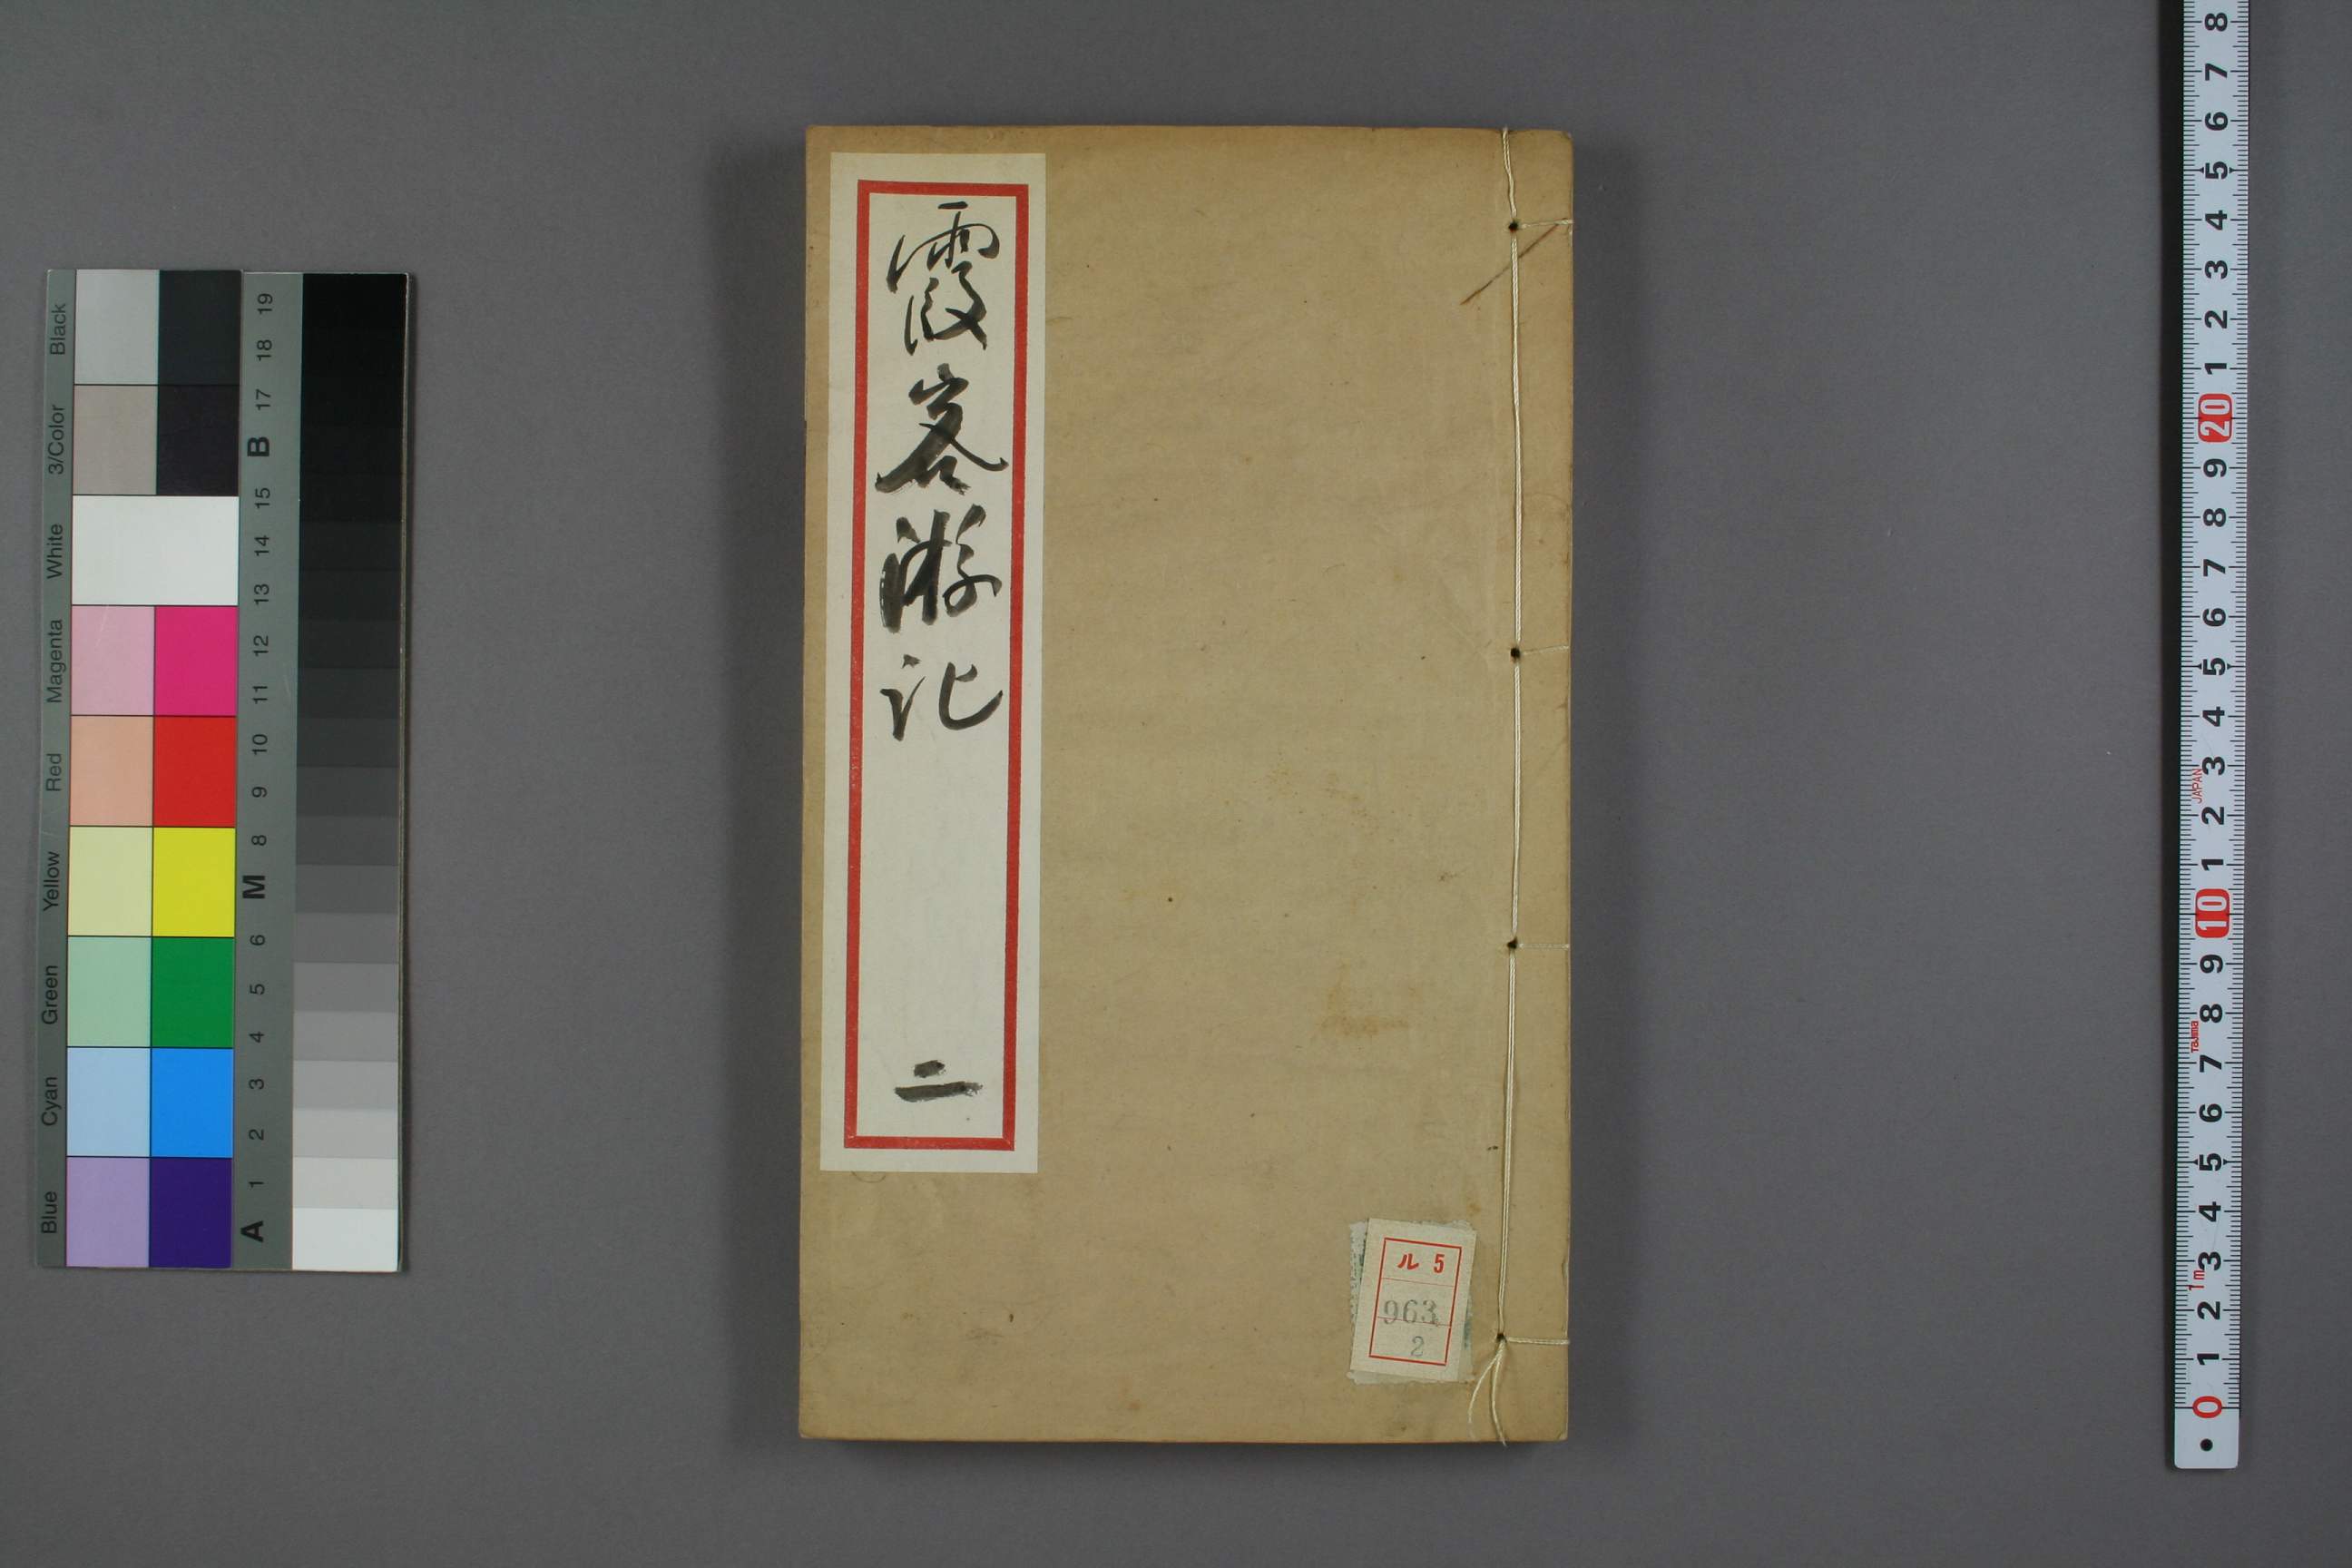 霞客游记
二
ル 5
963
2
Black
3/Color
White
Magenta
Red
Yellow
Green
Cyan
Blue
19
18
17
B
15
14
13
12
11
10
9
8
M
6
5
4
3
2
1
A
8
7
6
5
4
3
2
1
20
9
8
7
6
5
4
3
JAPAN
2
1
10
9
8
Tajima
7
6
5
4
3
1m
2
1
0